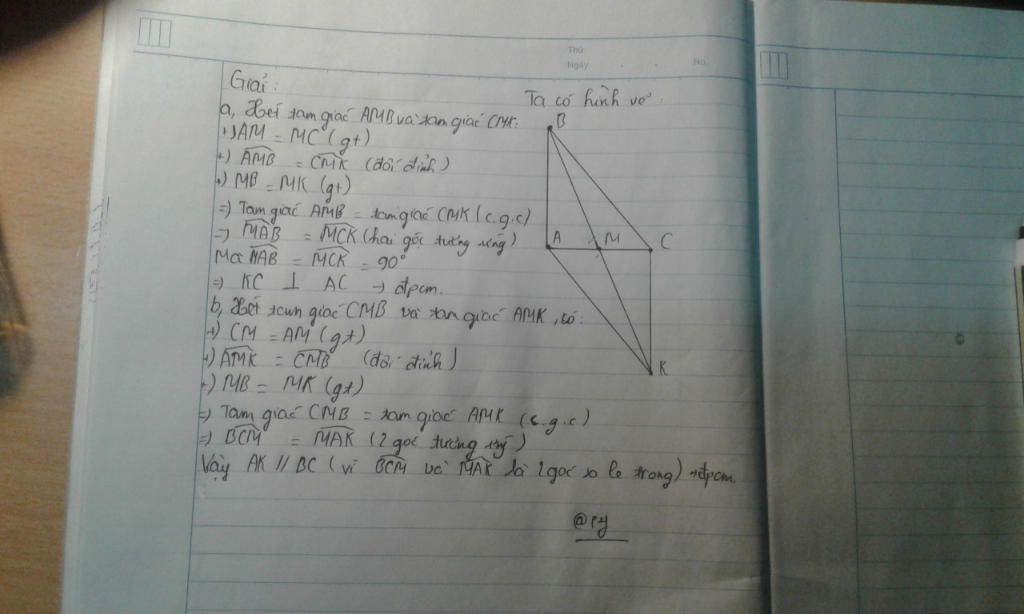 Thứ
Ngày
No.
Giải:
Ta có hình vẽ:
a, Xét tam giác AMB và tam giác CMK:
+) AM = MC (gt)
+) AMB = CMK (đối đỉnh)
+) MB = MK (gt)
=> Tam giác AMB = tam giác CMK (c.g.c)
=> MAB = MCK (hai góc tương ứng)
Mà MAB = MCK = 90°
=> KC ⊥ AC → đpcm.
b, Xét tam giác CMB và tam giác AMK, có:
+) CM = AM (gt)
+) AMK = CMB (đối đỉnh)
+) MB = MK (gt)
=> Tam giác CMB = tam giác AMK (c.g.c)
=> BCM = MAK (2 góc tương ứng)
Vậy AK // BC (vì BCM và MAK là 2 góc so le trong) → đpcm
@Py
B
A
M
C
K